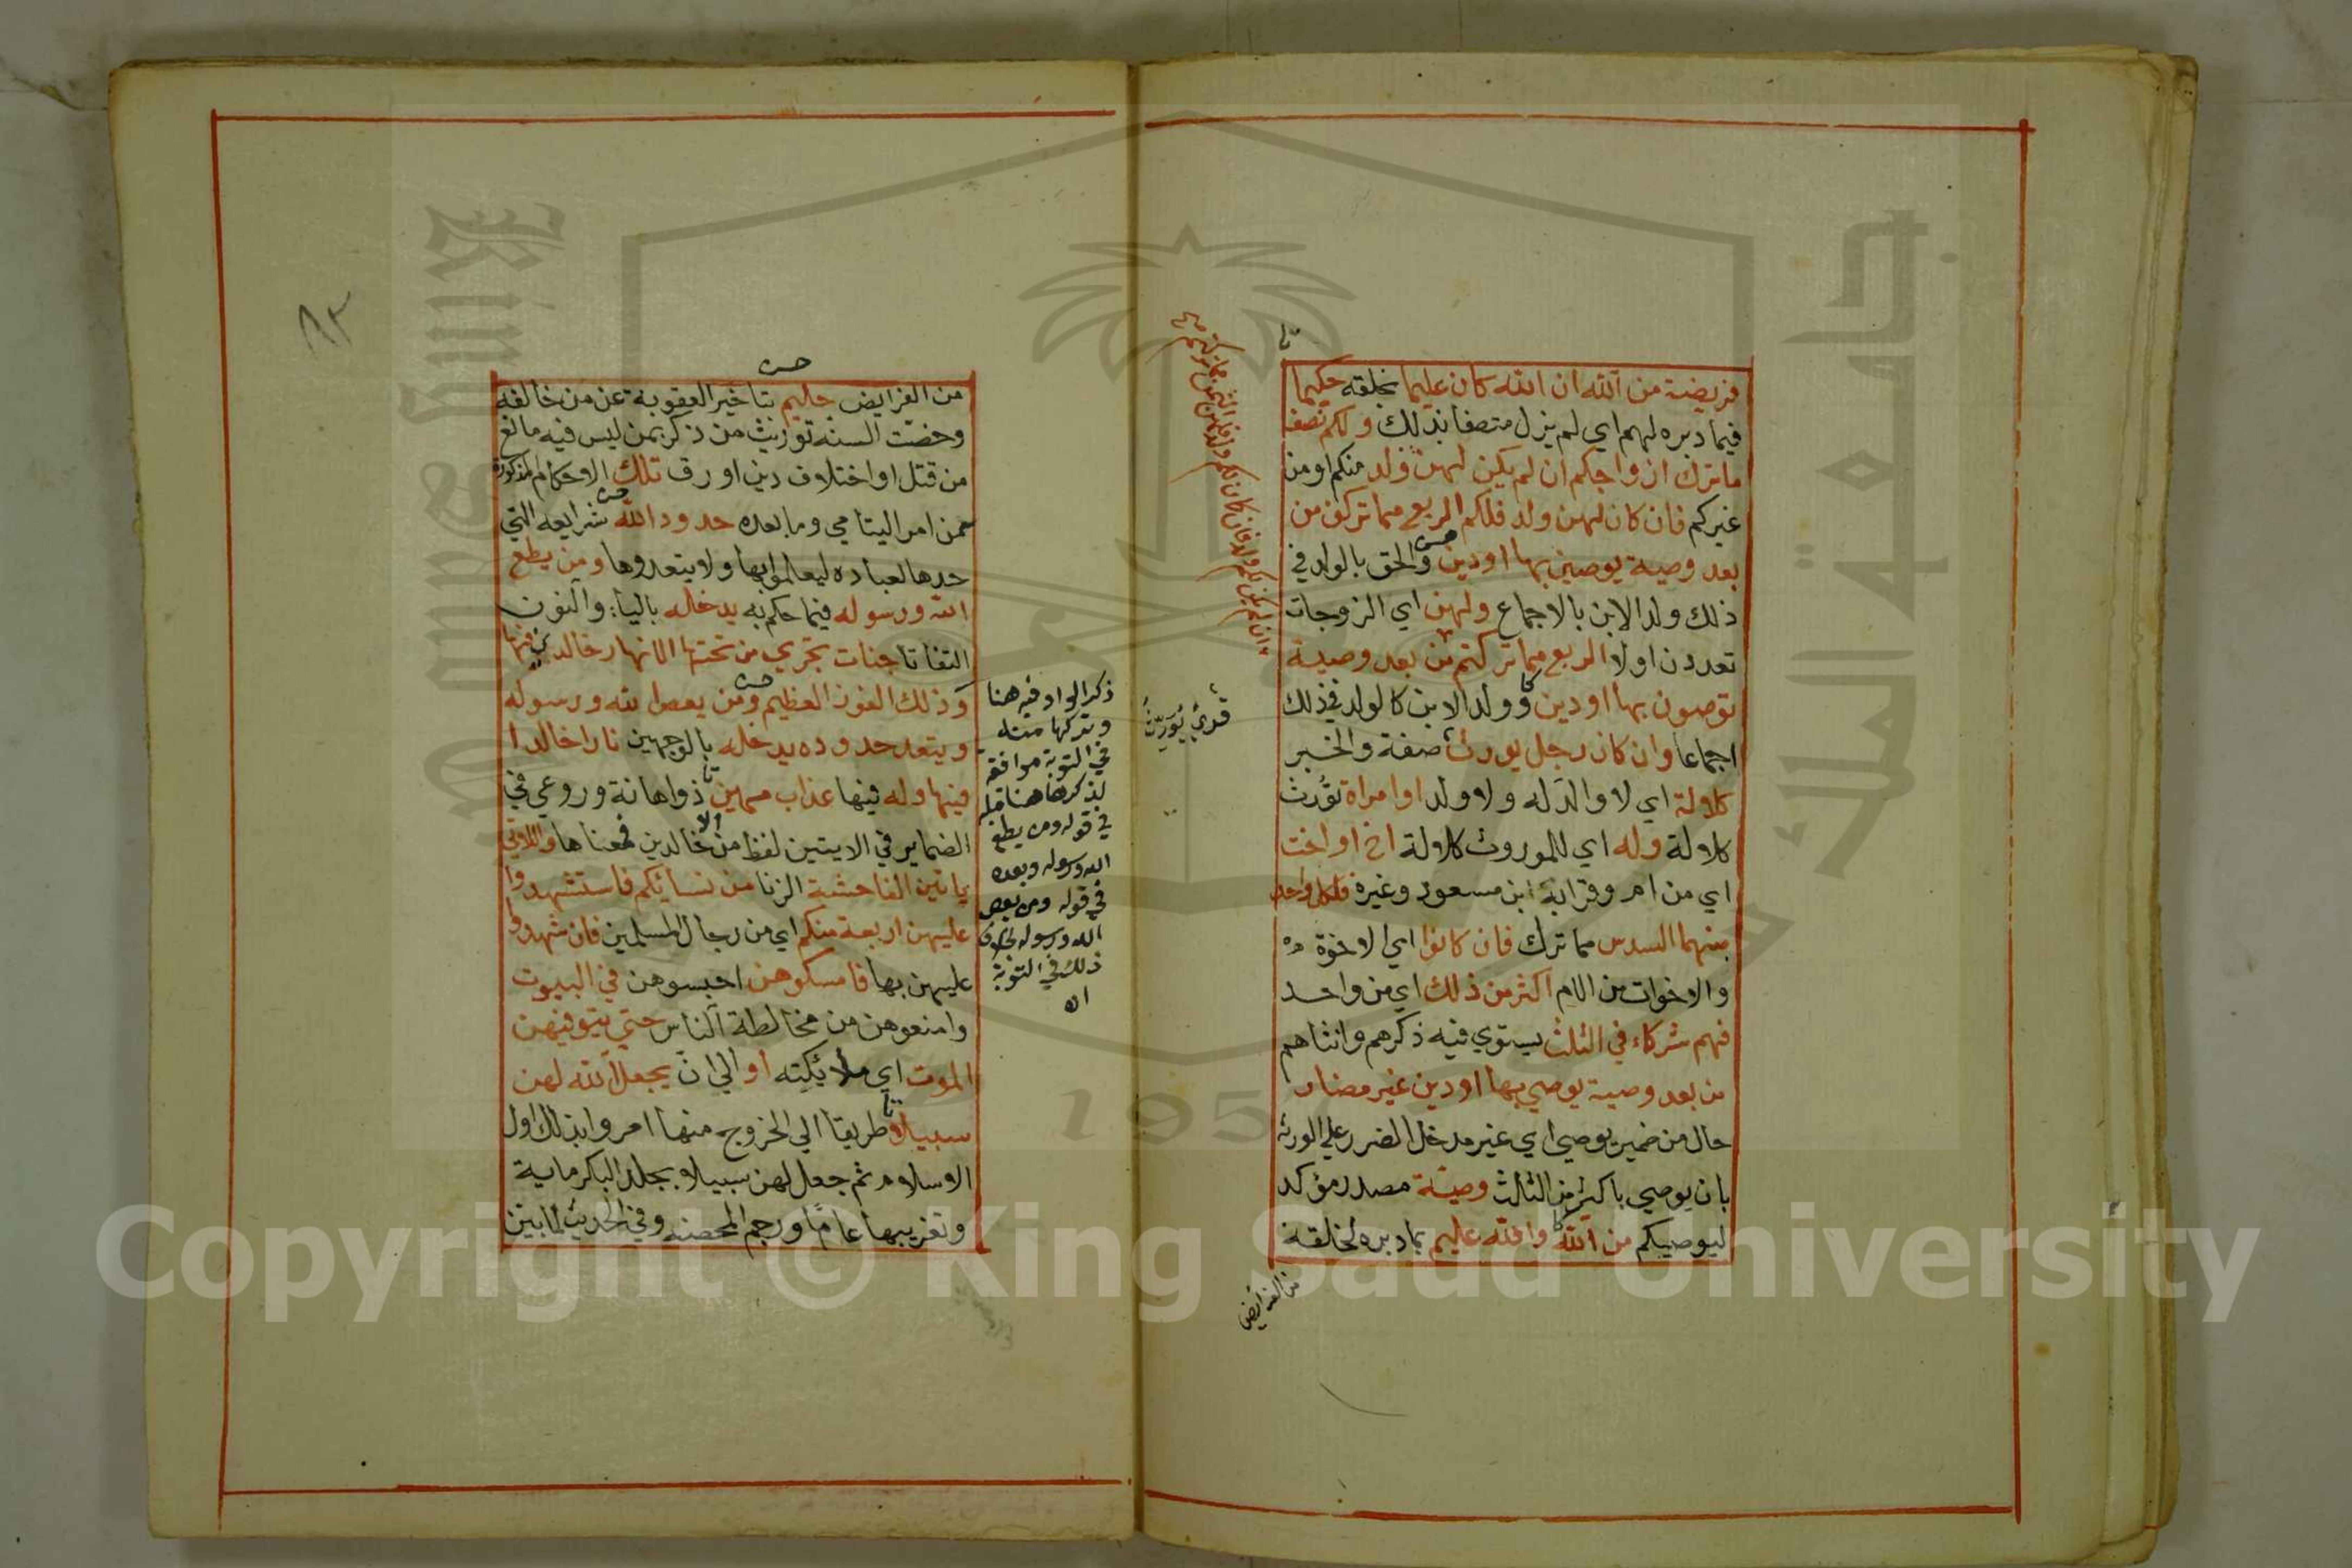 فريضة من الله ان الله كان عليما بخلقه حكيما
فيما دبره لهم اي لم يزل متصفا بذلك ولكم نصف
ما ترك ازواجكم ان لم يكن لهن ولد منكم او من
غيركم فان كان لهن ولد فلكم الربع مما تركن من
بعد وصية يوصين بها او دين والحق بالولد في
ذلك ولد الابن بالاجماع ولهن اي الزوجات
تعددن اولا الربع مما تركتم من بعد وصية
توصون بها او دين وولد الابن كالولد في ذلك
اجماعا وان كان رجل يورث صفة والخبر
كلالة اي لا والد له ولا ولد او امراة تورث
كلالة وله اي للموروث كلالة اخ او اخت
اي من ام وقرابه ابن مسعود وغيره فلكل واحد
منهما السدس مما ترك فان كانوا اي الاخوة
والاخوات من الام اكثر من ذلك اي من واحد
فهم شركاء في الثلث يستوي فيه ذكرهم وانثاهم
من بعد وصية يوصي بها او دين غير مضار
حال من ضمير يوصي اي غير مدخل الضرر علي الورثة
بان يوصي باكثر من الثلث وصية مصدر مؤكد
ليوصيكم من الله والله عليم بما دبره لخلقه
من الفرائض
ان لم يكن لكم ولد فان كان لكم ولد فلهن الثمن مما تركتم
قري يورث
٨٣
من الفرايض حليم بتاخير العقوبة عن من خالفه
وخصت السنه توريث من ذكر بمن ليس فيه مانع
من قتل او اختلاف دين او رق تلك الاحكام المذكورة
من امر اليتامي وما بعده حدود الله شرايعه التي
حدها لعباده ليعملوا بها ولا يتعدوها ومن يطع
الله ورسوله فيما حكم به يدخله بالياء والنون
التفاتا جنات تجري من تحتها الانهار خالدين فيها
وذلك الفوز العظيم ومن يعص الله ورسوله
ويتعد حدوده يدخله بالوجهين نارا خالدا
فيها وله فيها عذاب مهين ذو اهانة وروعي في
الضماير في الايتين لفظ من خالدين فمعناها واللاتي
ياتين الفاحشة الزنا من نسائكم فاستشهدوا
عليهن اربعة منكم اي من رجال المسلمين فان شهدوا
عليهن بها فامسكوهن احبسوهن في البيوت
وامنعوهن من مخالطة الناس حتي يتوفيهن
الموت اي ملائكته او الي ان يجعل الله لهن
سبيلا طريقا الي الخروج منها امروا بذلك اول
الاسلام ثم جعل لهن سبيلا بجلد البكر ماية
وتغريبها عاما ورجم المحصنه وفي الحديث لما بين
ذكر الواو فيه هنا
وتركها منه
في التوبة موافقة
لذكرها هنا قبله
في قوله ومن يطع
الله ورسوله وبعده
في قوله ومن يعص
الله ورسوله بخلاف
ذلك في التوبة
اه
Copyright © King Saud University
جامعة الملك سعود
King Saud
195